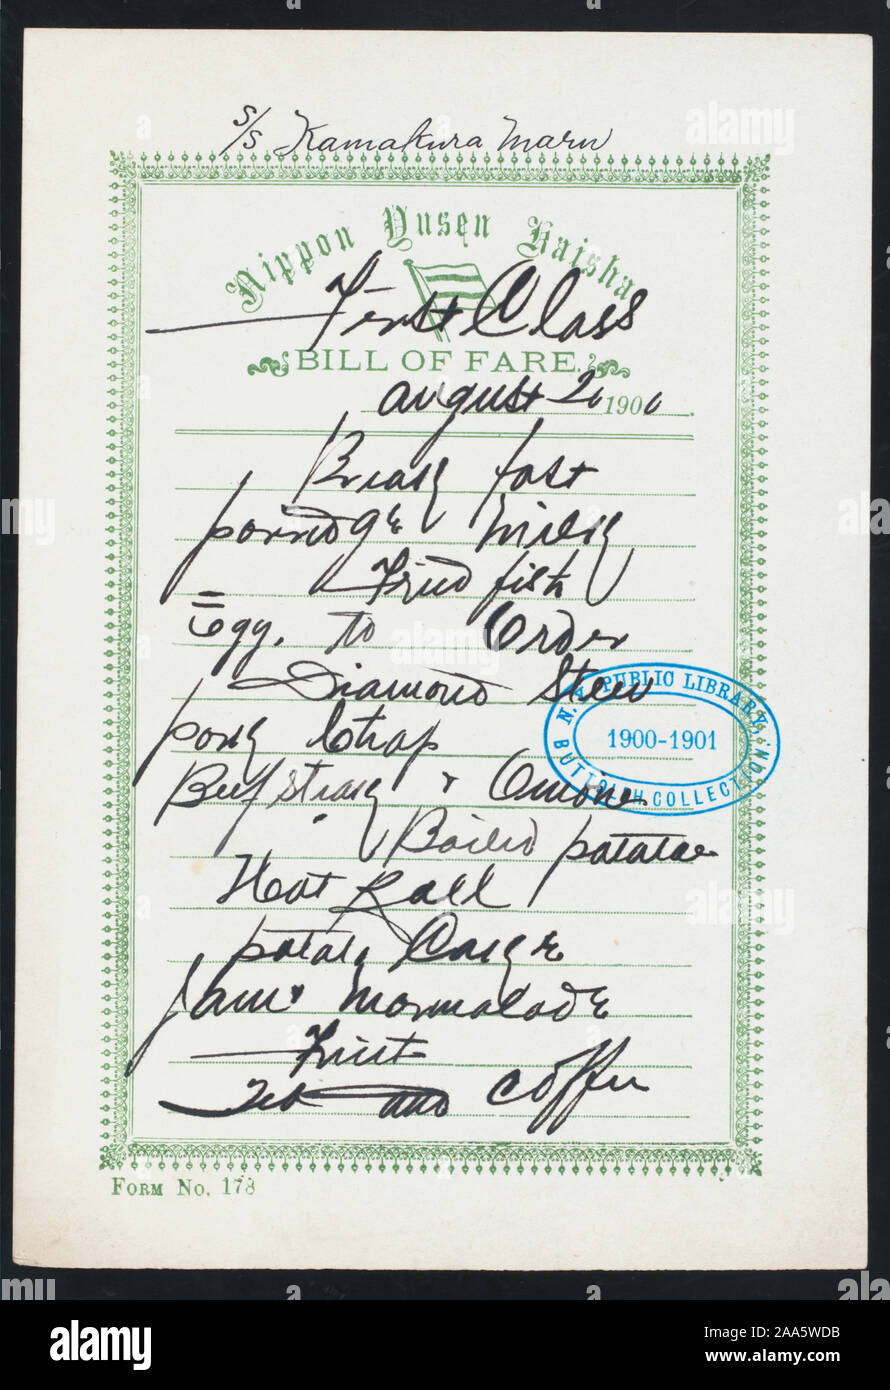 s/s Kamakura Maru
Nippon Yusen Kaisha
First Class
BILL OF FARE.
august 20 1900
Breakfast
porridge milk
Fried fish
Egg. to Order
Diamond Stew
pork Chop
Beef steak & Onions
Boiled potatoe
Hot Roll
potato Cake
Jam & Marmalade
Fruit
Tea and Coffee
N.Y. PUBLIC LIBRARY,
1900-1901
BUTTOLPH COLLECTION.
FORM NO. 173
alamy
Image ID: 2AA5WDB
www.alamy.com